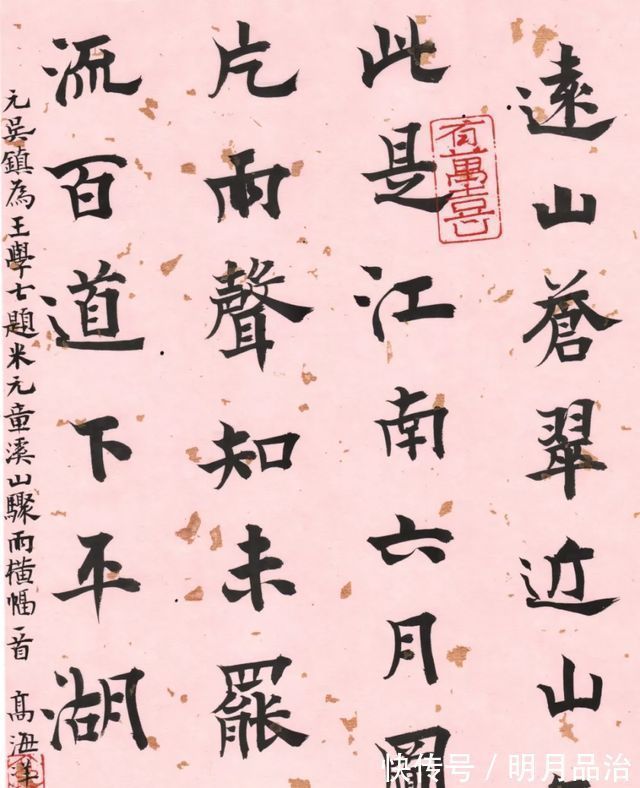 遠山蒼翠近山
此是江南六月圖
片雨聲知未罷
流百道下平湖
元吳鎮為王學士題米元童溪山驟雨橫幅一首 高海洋
快传号 / 明月品治